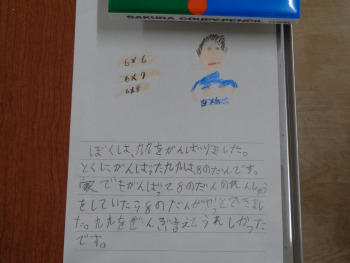 SAKURA COUPY-PENCIL
6×6
ぼくは、九九をがんばりました。
とくにがんばった九九は、8のだんです。
家でもがんばって8のだんのれんしゅう
をしていたら8のだんがやっとできまし
た。九九をぜんぶ言えてうれしかった
です。